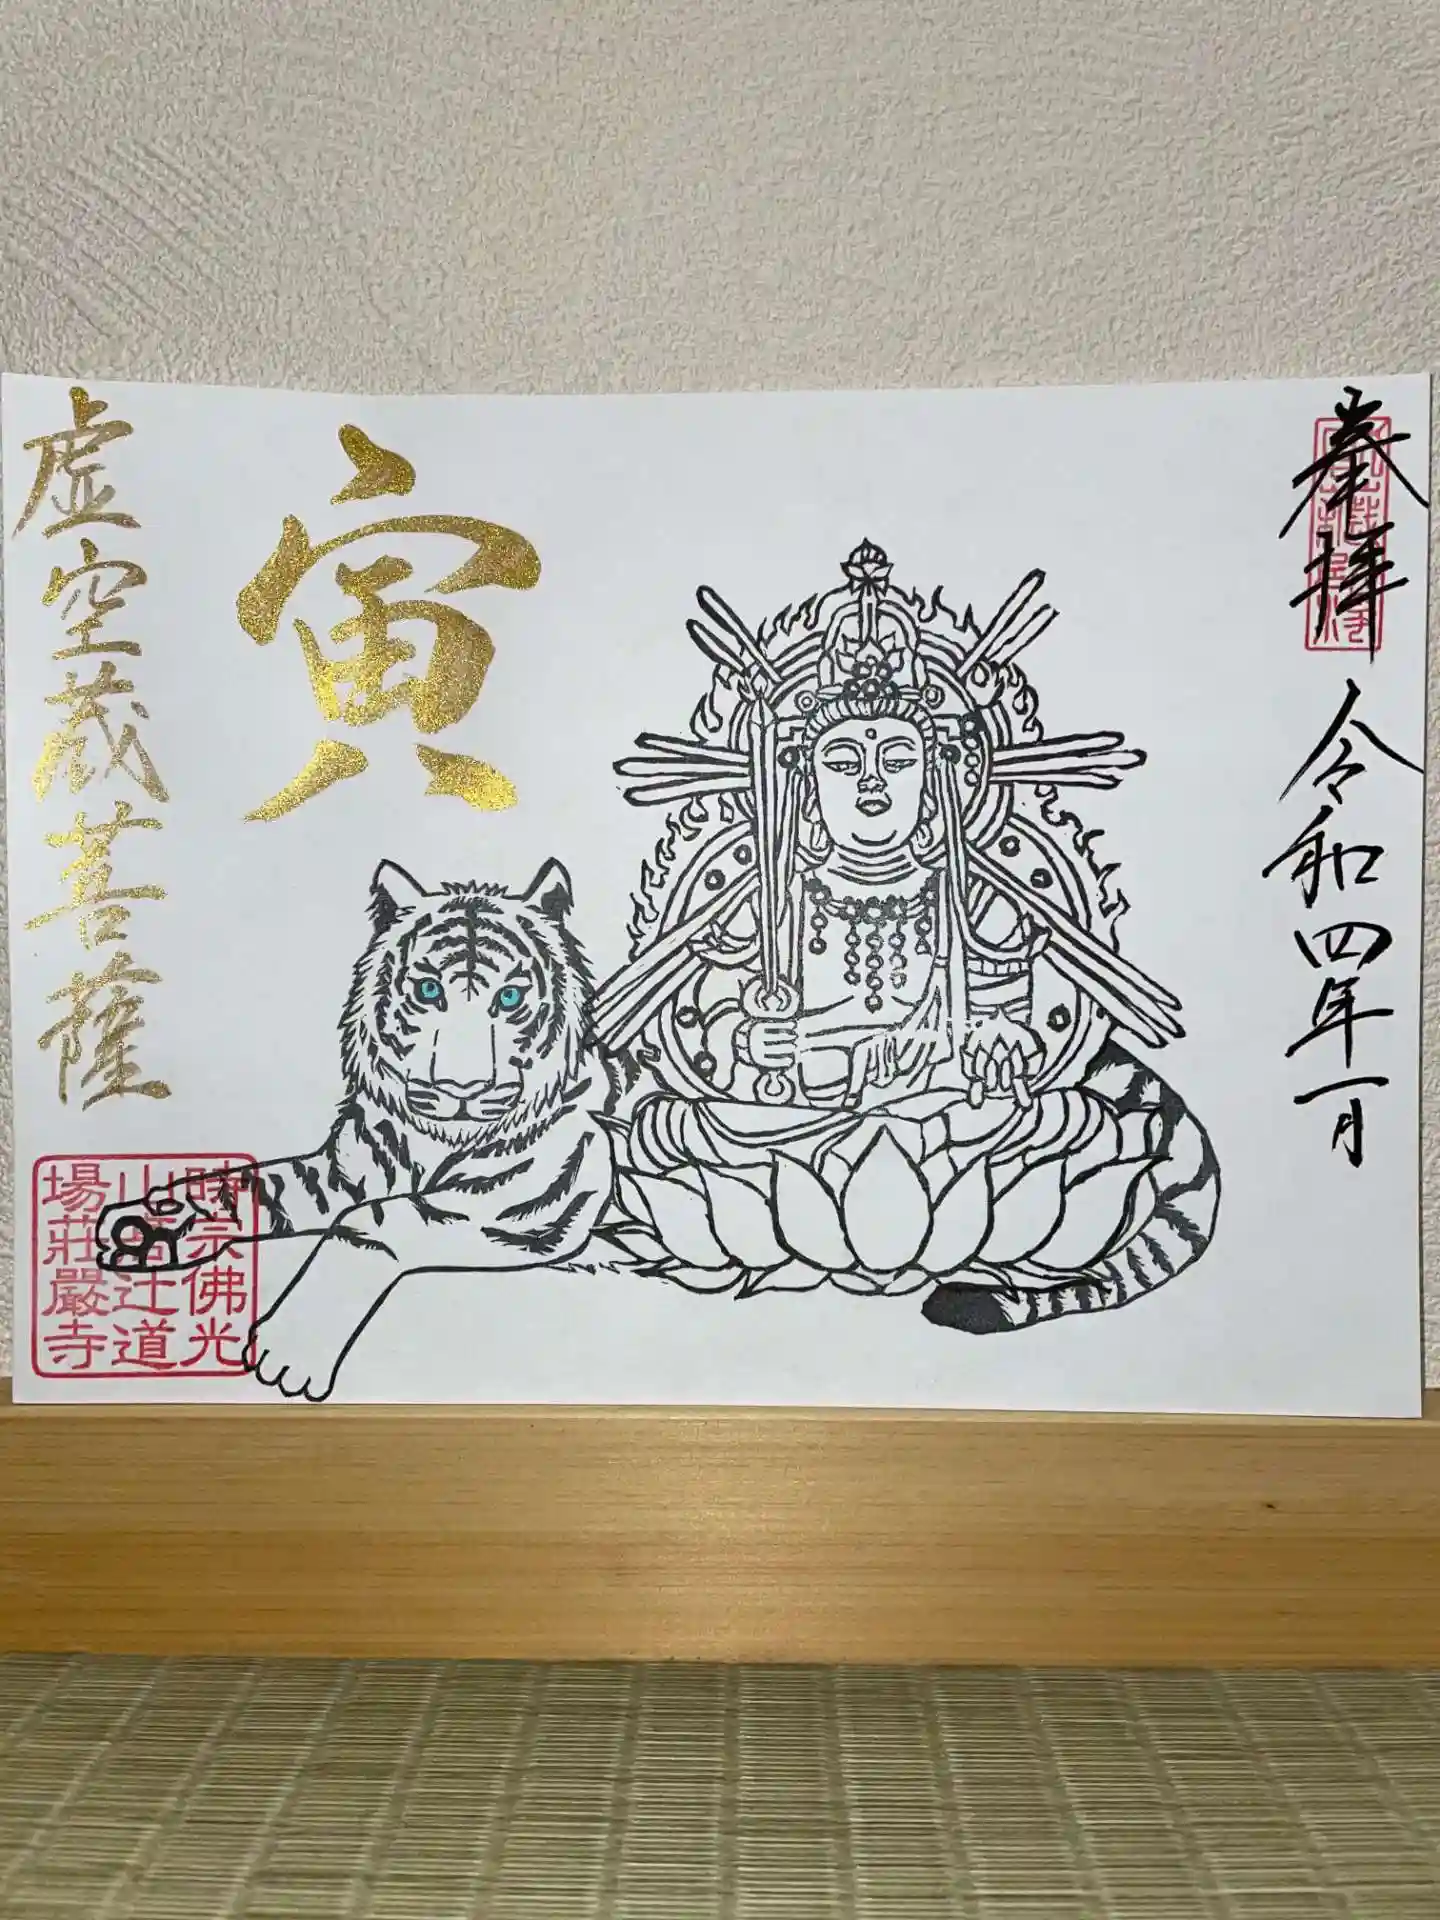 奉拝
令和四年一月
寅
虚空蔵菩薩
時宗佛光
山居辻道
場荘嚴寺